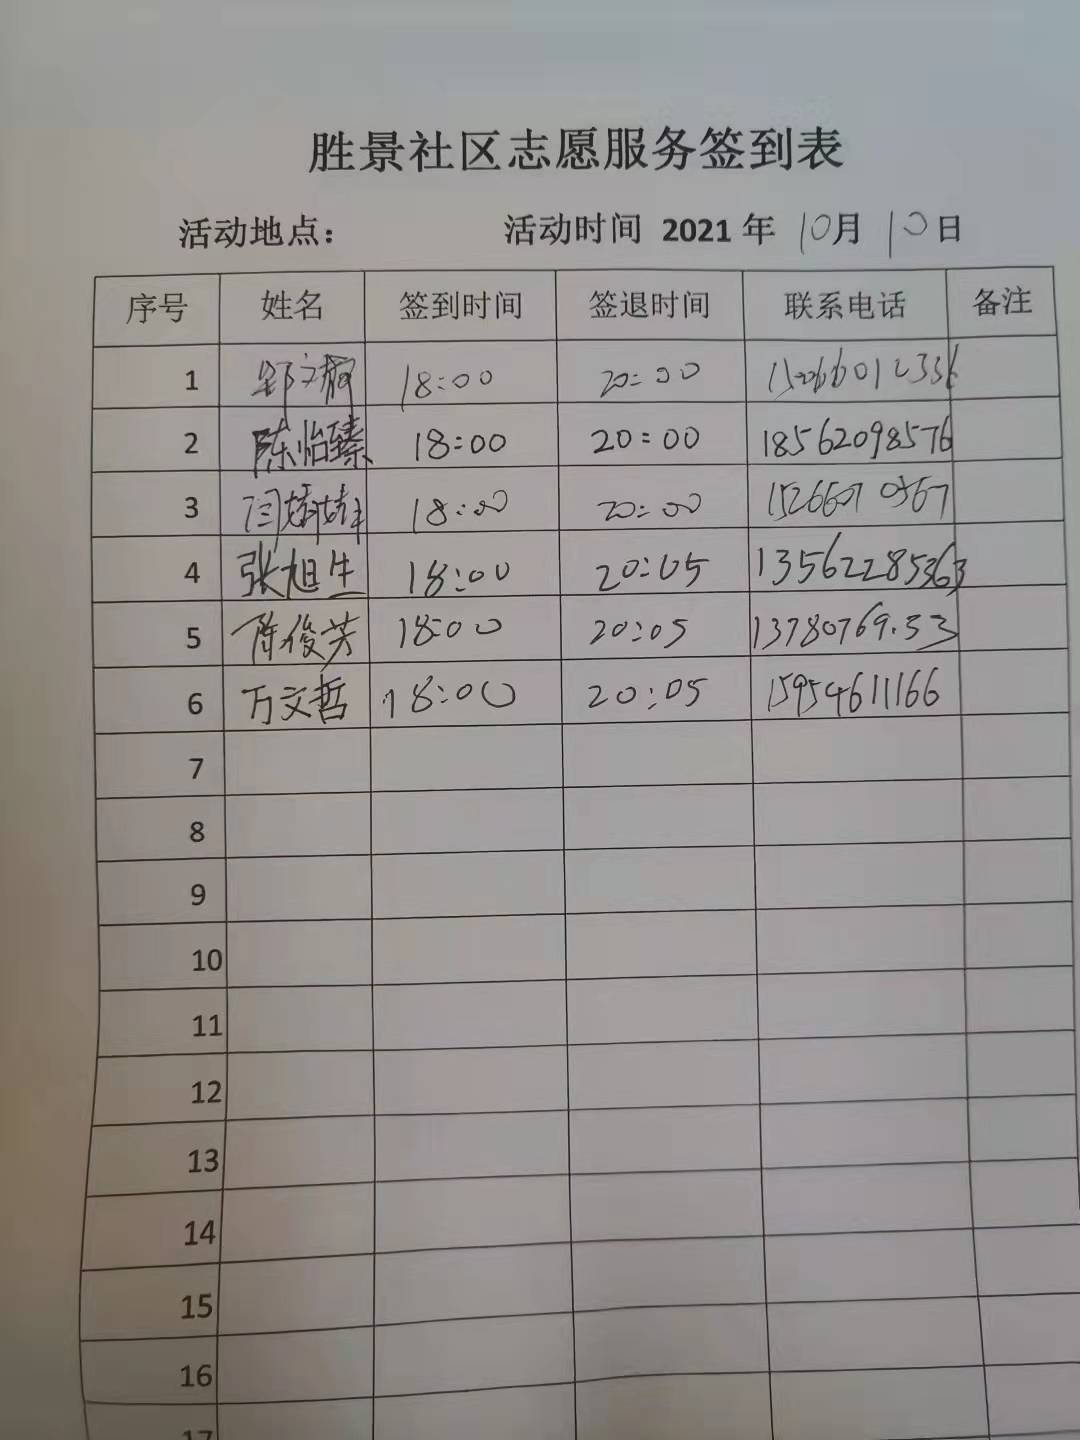 胜景社区志愿服务签到表
活动地点： 活动时间 2021 年 10月 10日
序号 姓名 签到时间 签退时间 联系电话 备注
1 18:00 20:00
2 陈怡臻 18:00 20:00 18562098576
3 18:00 20:00
4 张旭生 18:00 20:05 13562285363
5 陈俊芳 18:00 20:05
6 万文哲 18:00 20:05 15954611166
7
8
9
10
11
12
13
14
15
16
17